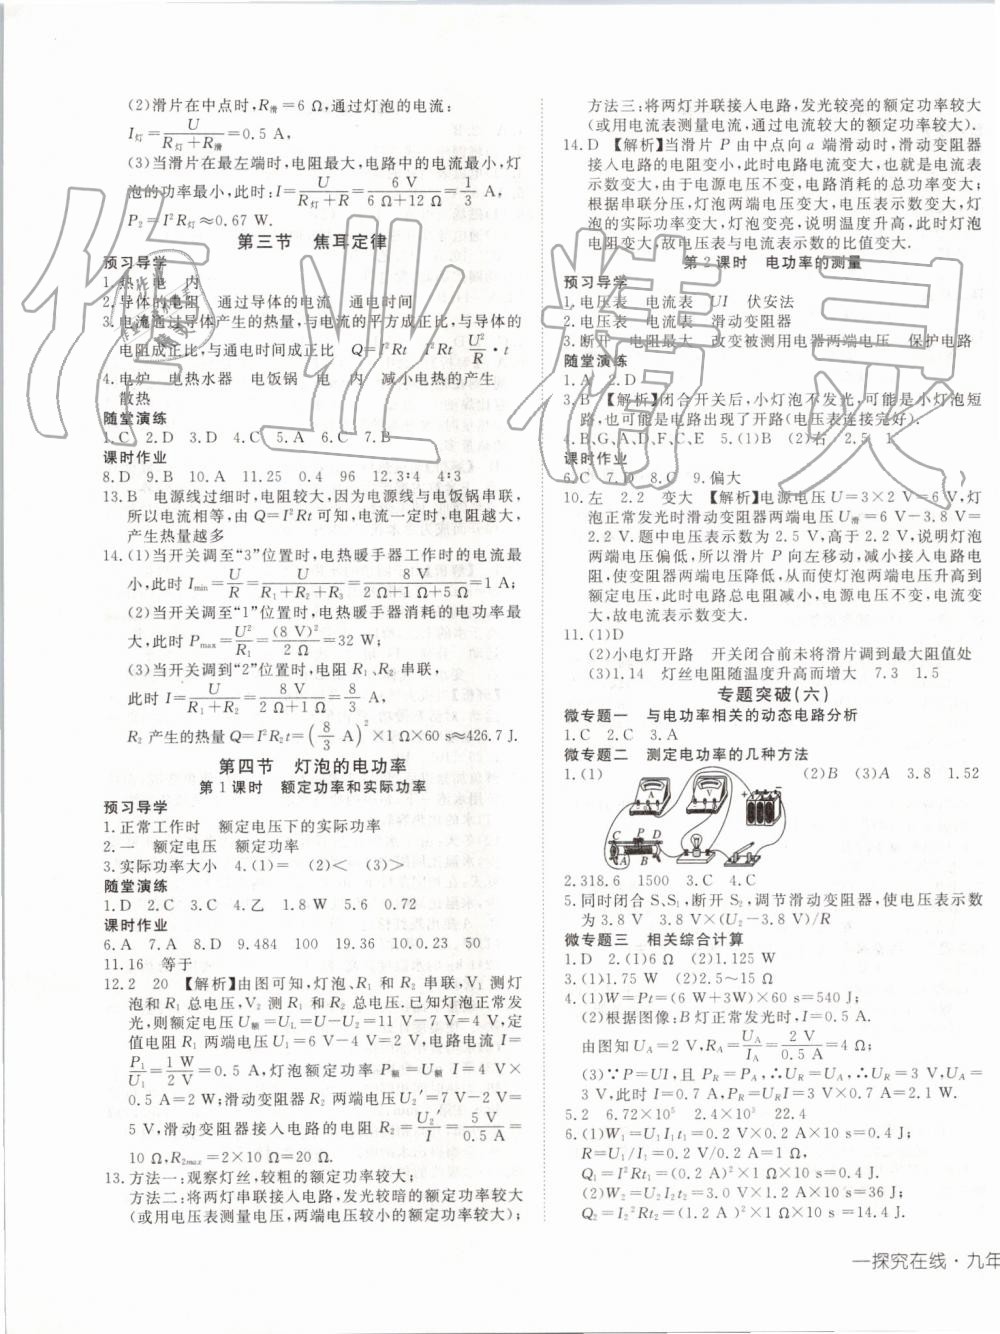 (2)滑片在中点时,R滑=6 Ω,通过灯泡的电流:
I灯=U/(R灯+R滑)=0.5 A,
(3)当滑片在最左端时,电阻最大,电路中的电流最小,灯
泡的功率最小,此时:I=U/(R灯+R)=6 V/(6 Ω+12 Ω)=1/3 A,
P₂=I²R灯≈0.67 W.
第三节 焦耳定律
预习导学
1.热 电 内
2.导体的电阻 通过导体的电流 通电时间
3.电流通过导体产生的热量,与电流的平方成正比,与导体的
电阻成正比,与通电时间成正比 Q=I²Rt I²Rt U²/R·t
4.电炉 电热水器 电饭锅 电 内 减小电热的产生
散热
随堂演练
1.C 2.D 3.D 4.C 5.A 6.C 7.B
课时作业
8.D 9.B 10.A 11.25 0.4 96 12.3∶4 4∶3
13.B 电源线过细时,电阻较大,因为电源线与电饭锅串联,
所以电流相等,由 Q=I²Rt 可知,电流一定时,电阻越大,
产生热量越多
14.(1)当开关调至“3”位置时,电热暖手器工作时的电流最
小,此时 Imin=U/R=U/(R₁+R₂+R₃)=8 V/(2 Ω+1 Ω+5 Ω)=1 A;
(2)当开关调至“1”位置时,电热暖手器消耗的电功率最
大,此时 Pmax=U²/R₁=(8 V)²/2 Ω=32 W;
(3)当开关调到“2”位置时,电阻 R₁、R₂ 串联,
此时 I=U/(R₁+R₂)=8 V/(2 Ω+1 Ω)=8/3 A
R₂ 产生的热量 Q=I²R₂t=(8/3 A)²×1 Ω×60 s≈426.7 J.
第四节 灯泡的电功率
第 1 课时 额定功率和实际功率
预习导学
1.正常工作时 额定电压下的实际功率
2.一 额定电压 额定功率
3.实际功率大小 4.(1)= (2)< (3)>
随堂演练
1.D 2.C 3.C 4.乙 1.8 W 5.6 0.72
课时作业
6.A 7.A 8.D 9.484 100 19.36 10.0.23 50
11.16 等于
12.2 20 【解析】由图可知,灯泡、R₁ 和 R₂ 串联,V₁ 测灯
泡和 R₁ 总电压,V₂ 测 R₁ 和 R₂ 总电压.已知灯泡正常发
光,则额定电压 U额=UL=U-U₂=11 V-7 V=4 V,定
值电阻 R₁ 两端电压 U₁=6 V-4 V=2 V,电路电流 I=
P₁/U₁=1 W/2 V=0.5 A,灯泡额定功率 P额=U额 I=4 V×
0.5 A=2 W;滑动变阻器 R₂ 两端电压 U₂′=7 V-2 V=
5 V,滑动变阻器接入电路的电阻 R₂=U₂′/I=5 V/0.5 A=
10 Ω,R2max=2×10 Ω=20 Ω.
13.方法一:观察灯丝,较粗的额定功率较大;
方法二:将两灯串联接入电路,发光较暗的额定功率较大
(或用电压表测量电压,两端电压较小的额定功率较大);
方法三:将两灯并联接入电路,发光较亮的额定功率较大
(或用电流表测量电流,通过电流较大的额定功率较大).
14.D 【解析】当滑片 P 由中点向 a 端滑动时,滑动变阻器
接入电路的电阻变小,此时电路电流变大,也就是电流表
示数变大,由于电源电压不变,电路消耗的总功率变大;
根据串联分压,灯泡两端电压变大,电压表示数变大,灯
泡的实际功率变大,灯泡变亮,说明温度升高,此时灯泡
电阻变大,故电压表与电流表示数的比值变大.
第 2 课时 电功率的测量
预习导学
1.电压表 电流表 UI 伏安法
2.电压表 电流表 滑动变阻器
3.断开 电阻最大 改变被测用电器两端电压 保护电路
随堂演练
1.A 2.D
3.B 【解析】闭合开关后,小灯泡不发光,可能是小灯泡短
路,也可能是电路出现了开路(电压表连接完好).
4.B、G、A、D、F、C、E 5.(1)B (2)右 2.5 1
课时作业
6.C 7.D 8.C 9.偏大
10.左 2.2 变大 【解析】电源电压 U=3×2 V=6 V,灯
泡正常发光时滑动变阻器两端电压 U滑=6 V-3.8 V=
2.2 V.题中电压表示数为 2.5 V,高于 2.2 V,说明灯泡
两端电压偏低,所以滑片 P 向左移动,减小接入电路电
阻,使变阻器两端电压降低,从而使灯泡两端电压升高到
额定电压,此时电路总电阻减小,电源电压不变,电流变
大,故电流表示数变大.
11.(1)D
(2)小电灯开路 开关闭合前未将滑片调到最大阻值处
(3)1.14 灯丝电阻随温度升高而增大 7.3 1.5
专题突破(六)
微专题一 与电功率相关的动态电路分析
1.C 2.C 3.A
微专题二 测定电功率的几种方法
1.(1) (2)B (3)A 3.8 1.52
A V
C P D
A B
2.318.6 1500 3.C 4.C
5.同时闭合 S、S₁,断开 S₂,调节滑动变阻器,使电压表示数
为 3.8 V 3.8 V×(U₂-3.8 V)/R
微专题三 相关综合计算
1.D 2.(1)6 Ω (2)1.125 W
3.(1)1.75 W (2)2.5~15 Ω
4.(1)W=Pt=(6 W+3W)×60 s=540 J;
(2)根据图像:B 灯正常发光时,I=0.5 A.
由图知 UA=2 V,RA=UA/IA=2 V/0.5 A=4 Ω;
(3)∵P=UI,且 PR=PA,∴UR=UA,∴UR=3 V,UA=
3 V,此时 I=0.7 A,PR=URI=3 V×0.7 A=2.1 W.
5.2 6.72×10⁵ 2.4×10³ 22.4
6.(1)W₁=U₁I₁t₁=0.2 V×0.2 A×10 s=0.4 J;
R=U₁/I₁=0.2 V/0.2 A=1 Ω;
Q₁=I₁²Rt₁=(0.2 A)²×1 Ω×10 s=0.4 J;
(2)W₂=U₂I₂t₂=3.0 V×1.2 A×10 s=36 J;
Q₂=I₂²Rt₂=(1.2 A)²×1 Ω×10 s=14.4 J.
一探究在线·九年
作业精灵